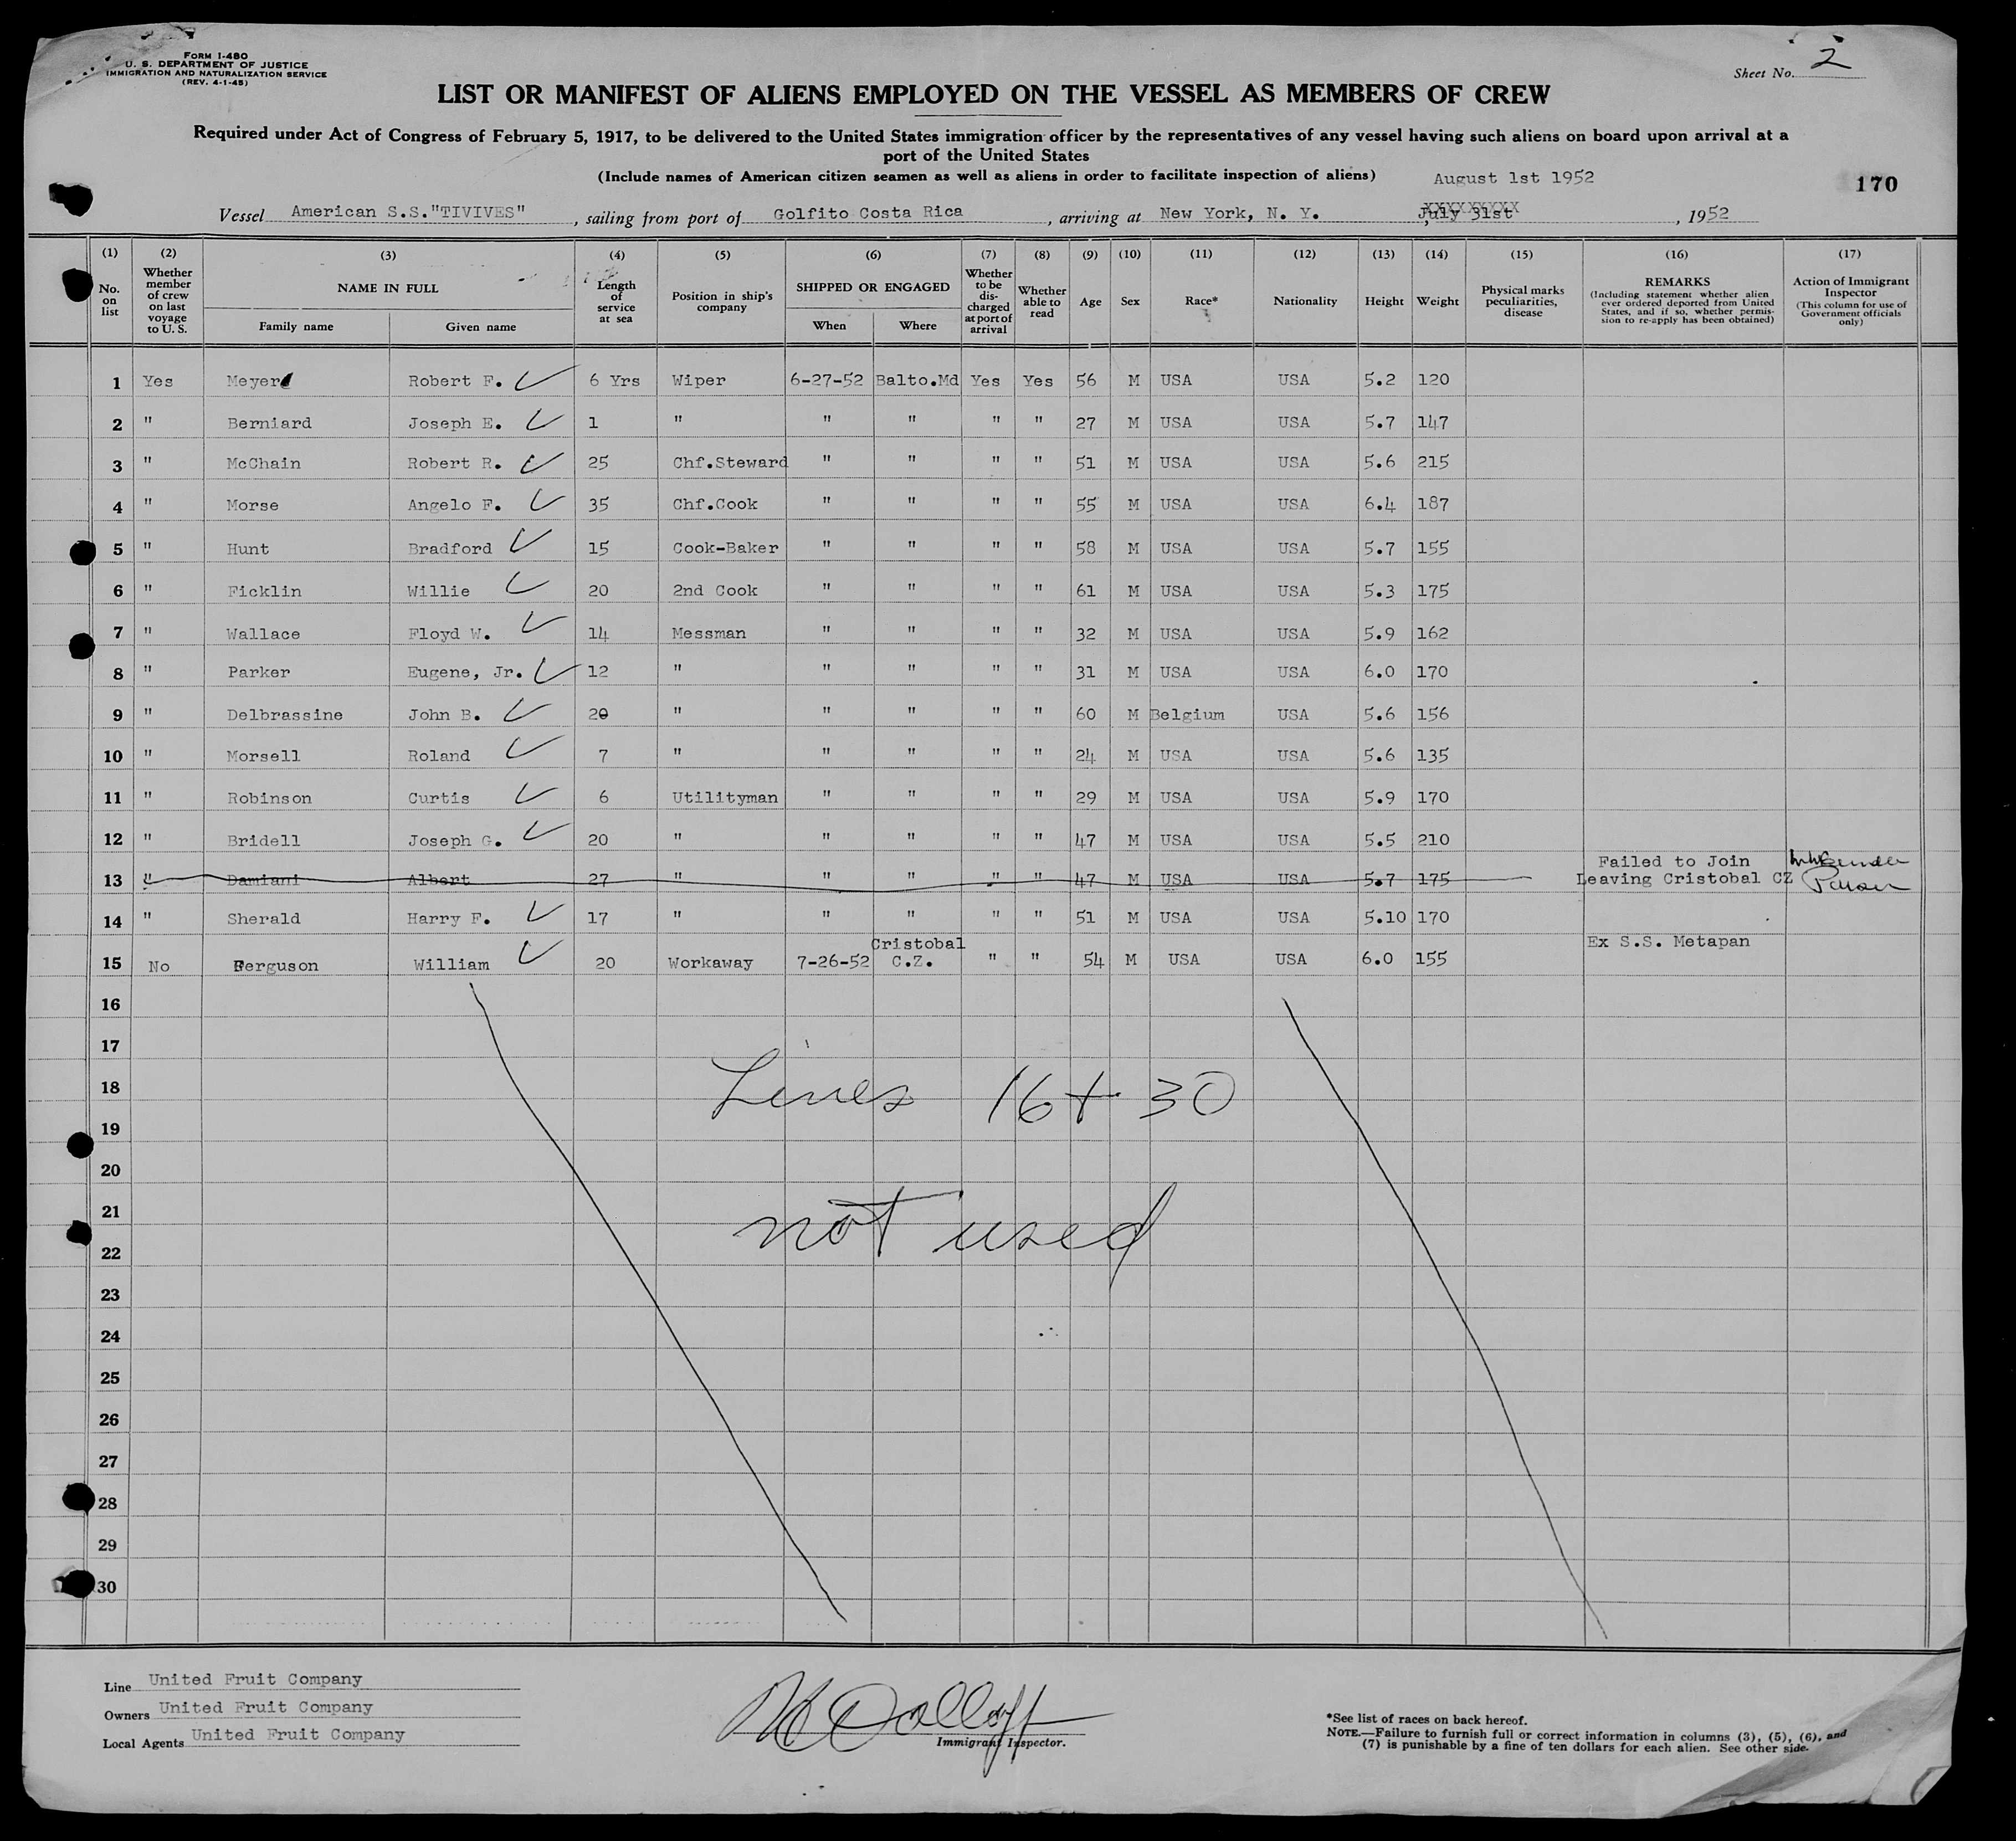 FORM I-480
U. S. DEPARTMENT OF JUSTICE
IMMIGRATION AND NATURALIZATION SERVICE
(REV. 4-1-45)
Sheet No. 2
LIST OR MANIFEST OF ALIENS EMPLOYED ON THE VESSEL AS MEMBERS OF CREW
Required under Act of Congress of February 5, 1917, to be delivered to the United States immigration officer by the representatives of any vessel having such aliens on board upon arrival at a
port of the United States
(Include names of American citizen seamen as well as aliens in order to facilitate inspection of aliens)
August 1st 1952
170
Vessel American S.S."TIVIVES" , sailing from port of Golfito Costa Rica , arriving at New York, N. Y. July 31st , 1952
(1) (2) (3) (4) (5) (6) (7) (8) (9) (10) (11) (12) (13) (14) (15) (16) (17)
No. on list
Whether member of crew on last voyage to U. S.
NAME IN FULL
Family name Given name
Length of service at sea
Position in ship's company
SHIPPED OR ENGAGED
When Where
Whether to be discharged at port of arrival
Whether able to read
Age
Sex
Race*
Nationality
Height
Weight
Physical marks peculiarities, disease
REMARKS
(Including statement whether alien ever ordered deported from United States, and if so, whether permission to re-apply has been obtained)
Action of Immigrant Inspector
(This column for use of Government officials only)
1 Yes Meyer Robert F. 6 Yrs Wiper 6-27-52 Balto.Md Yes Yes 56 M USA USA 5.2 120
2 " Berniard Joseph E. 1 " " " " " 27 M USA USA 5.7 147
3 " McChain Robert R. 25 Chf.Steward " " " " 51 M USA USA 5.6 215
4 " Morse Angelo F. 35 Chf.Cook " " " " 55 M USA USA 6.4 187
5 " Hunt Bradford 15 Cook-Baker " " " " 58 M USA USA 5.7 155
6 " Ficklin Willie 20 2nd Cook " " " " 61 M USA USA 5.3 175
7 " Wallace Floyd W. 14 Messman " " " " 32 M USA USA 5.9 162
8 " Parker Eugene, Jr. 12 " " " " " 31 M USA USA 6.0 170
9 " Delbrassine John B. 20 " " " " " 60 M Belgium USA 5.6 156
10 " Morsell Roland 7 " " " " " 24 M USA USA 5.6 135
11 " Robinson Curtis 6 Utilityman " " " " 29 M USA USA 5.9 170
12 " Bridell Joseph G. 20 " " " " " 47 M USA USA 5.5 210
13 " Damiani Albert 27 " " " " " 47 M USA USA 5.7 175 Failed to Join
Leaving Cristobal CZ
14 " Sherald Harry F. 17 " " " " " 51 M USA USA 5.10 170
15 No Ferguson William 20 Workaway 7-26-52 Cristobal C.Z. " " 54 M USA USA 6.0 155 Ex S.S. Metapan
16
17
18
Lines 16 + 30
19
20
21
not used
22
23
24
25
26
27
28
29
30
Line United Fruit Company
Owners United Fruit Company
Local Agents United Fruit Company
Immigrant Inspector.
*See list of races on back hereof.
NOTE.—Failure to furnish full or correct information in columns (3), (5), (6), and
(7) is punishable by a fine of ten dollars for each alien. See other side.